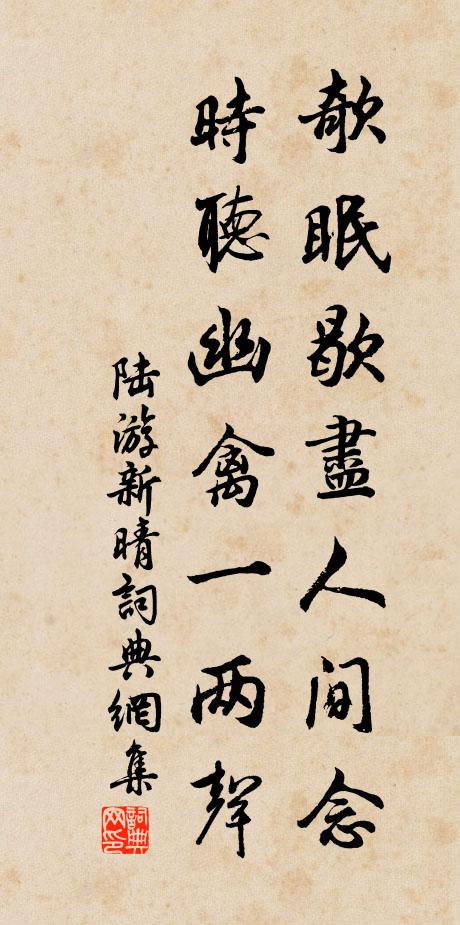 欹眠歇盡人间念
時聽幽禽一两聲
陆游新晴詞典網集
詞典网印